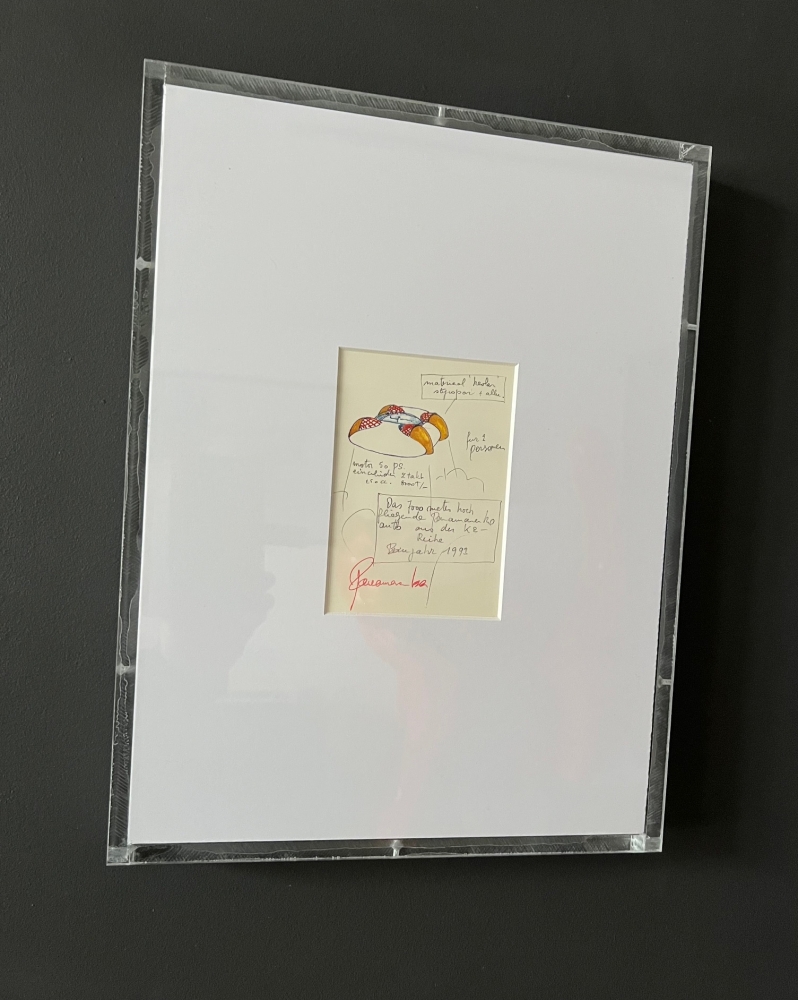 material "kevlar"
styropor + allu.
für 2
personen
motor 50 PS.
2 takt
Das 7000 meter hoch
fliegende Panamarenko
auto aus der KE-
Reihe
Baujahr 1992
Panamarenko